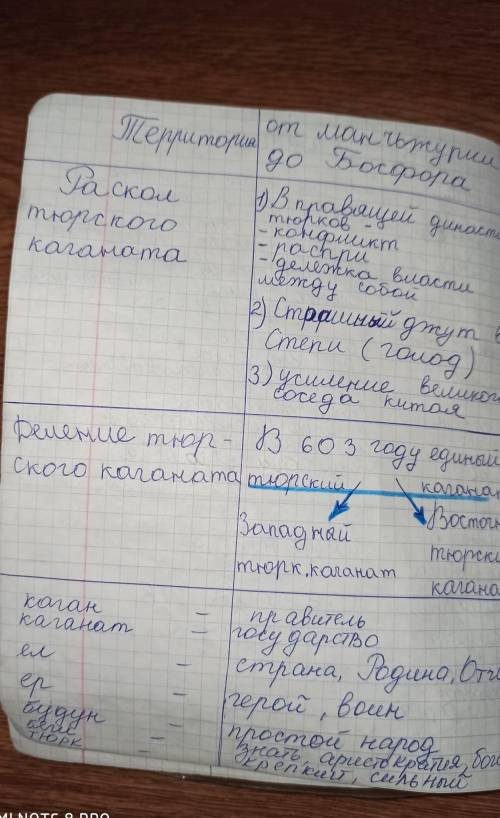 Территория
от манчьжурии
до Босфора
Раскол
тюрского
каганата
1) В правящей династи
тюрков -
- конфликт
- распри
- дележка власти
между собой
2) Страшный джут в
Степи (голод)
3) усиление великого
соседа китая
Деление тюр-
ского каганата
В 603 году единый
тюрский каганат
Западный
тюрк. каганат
Восточн
тюрски
кагана
каган = правитель
каганат = государство
ел - страна, Родина, Отч
ер - герой, воин
будун - простой народ
беги - знать, аристократия, бога
тюрк - крепкий, сильный
MI NOTE 8 PRO